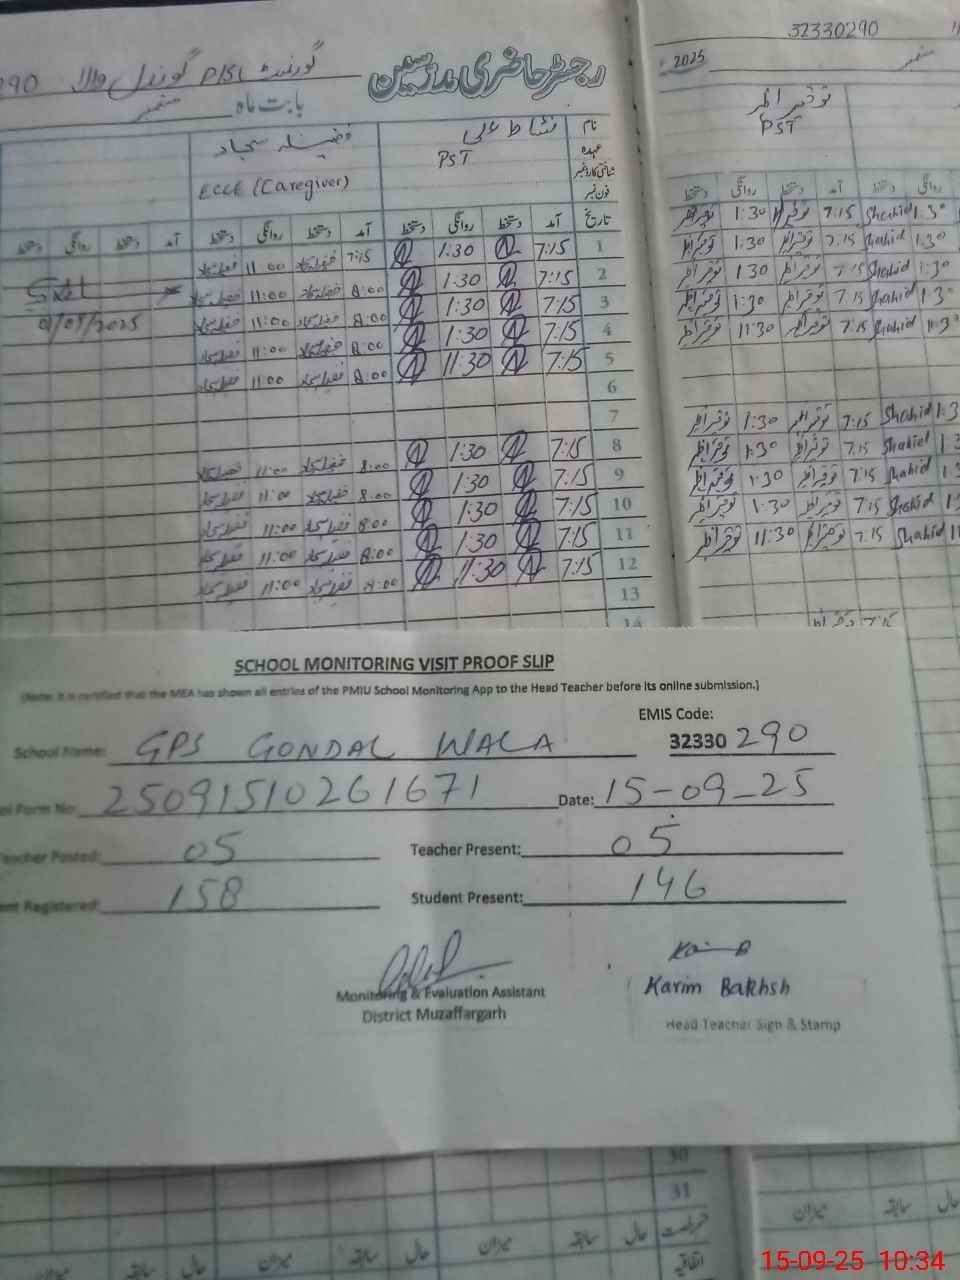 32330290
290 گورنمنٹ P/S گوندل والا
رجسٹر حاضری مدرسین
2025
ستمبر
بابت ماہ ستمبر
نام نشاط علی فضیلہ سجاد
عہدہ PST ECCE (Caregiver)
شناختی کارڈ نمبر
فون نمبر
توقیر اظہر
PST
تاریخ آمد دستخط روانگی دستخط آمد دستخط روانگی دستخط آمد دستخط روانگی دستخط
روانگی دستخط آمد دستخط روانگی دستخط
1 7:15 1:30 7:15 فضیلہ سجاد 11:00 فضیلہ سجاد
2 7:15 1:30 8:00 فضیلہ سجاد 11:00 فضیلہ سجاد
3 7:15 1:30 8:00 فضیلہ سجاد 11:00 فضیلہ سجاد 01/09/2025
4 7:15 1:30 8:00 فضیلہ سجاد 11:00 فضیلہ سجاد
5 7:15 11:30 8:00 فضیلہ سجاد 11:00 فضیلہ سجاد
6
7
8 7:15 1:30 8:00 فضیلہ سجاد 11:00 فضیلہ سجاد
9 7:15 1:30 8:00 فضیلہ سجاد 11:00 فضیلہ سجاد
10 7:15 1:30 8:00 فضیلہ سجاد 11:00 فضیلہ سجاد
11 7:15 1:30 8:00 فضیلہ سجاد 11:00 فضیلہ سجاد
12 7:15 11:30 8:00 فضیلہ سجاد 11:00 فضیلہ سجاد
13
14
1:30 Shahid 7:15 توقیر اظہر 1:30 توقیر اظہر
1:30 Shahid 7:15 توقیر اظہر 1:30 توقیر اظہر
1:30 Shahid 7:15 توقیر اظہر 1:30 توقیر اظہر
1:30 Shahid 7:15 توقیر اظہر 1:30 توقیر اظہر
11:30 Shahid 7:15 توقیر اظہر 11:30 توقیر اظہر
1:3 Shahid 7:15 توقیر اظہر 1:30 توقیر اظہر
1:3 Shahid 7:15 توقیر اظہر 1:30 توقیر اظہر
1:3 Shahid 7:15 توقیر اظہر 1:30 توقیر اظہر
Shahid 7:15 توقیر اظہر 1:30 توقیر اظہر
Shahid 7:15 توقیر اظہر 11:30 توقیر اظہر
7:15 توقیر اظہر
SCHOOL MONITORING VISIT PROOF SLIP
(Note: It is certified that the MEA has shown all entries of the PMIU School Monitoring App to the Head Teacher before its online submission.)
EMIS Code:
School Name: GPS GONDAL WALA 32330 290
ol Form No: 25091510261671 Date: 15-09-25
Teacher Posted: 05 Teacher Present: 05
ent Registered: 158 Student Present: 146
Monitoring & Evaluation Assistant
District Muzaffargarh
Karim Bakhsh
Head Teacher Sign & Stamp
30
31
میزان سابقہ حال میزان سابقہ حال میزان سابقہ حال رخصت
اتفاقیہ
حال سابقہ میزان
15-09-25 10:34